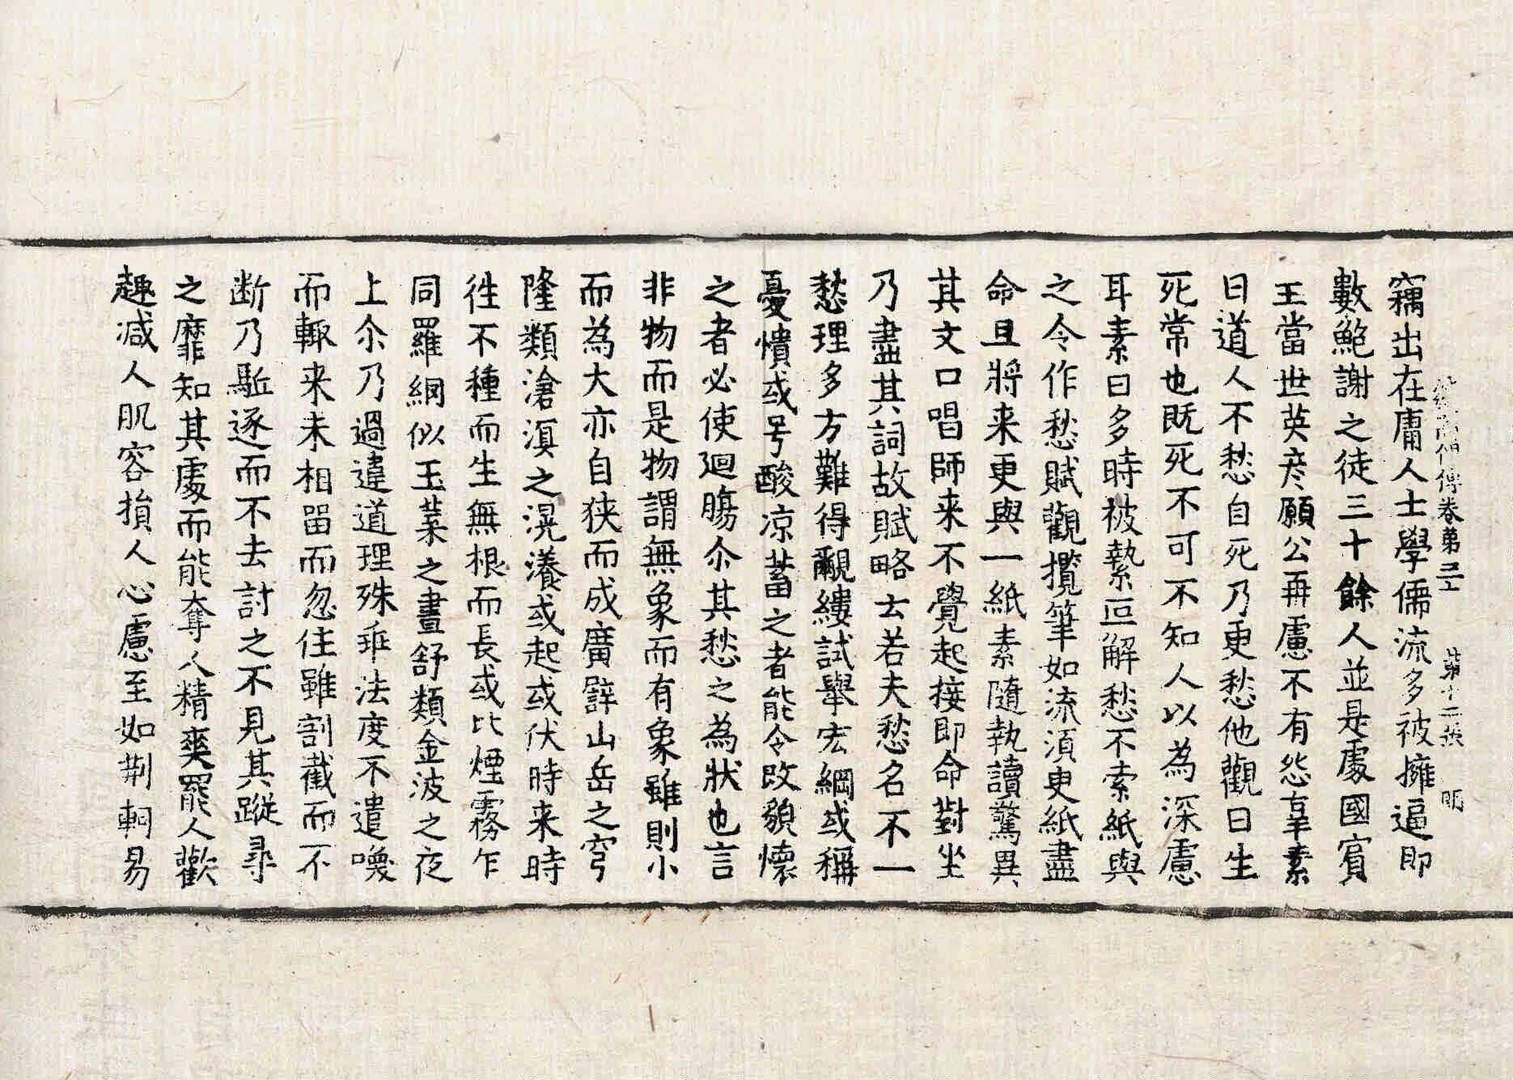 續高僧傳卷第三十 第十二張 明
竊出在庸人士學儒流多被擁逼即
數鮑謝之徒三十餘人並是處國賓
王當世英彥願公再慮不有怨辜素
曰道人不愁自死乃更愁他觀曰生
死常也既死不可不知人以為深慮
耳素曰多時被縶叵解愁不索紙與
之令作愁賦觀攬筆如流須更紙盡
命且將来更與一紙素隨執讀驚異
其文口唱師来不覺起接即命對坐
乃盡其詞故賦略云若夫愁名不一
愁理多方難得覼縷試舉宏綱或稱
憂憒或号酸凉蓄之者能令改貌懷
之者必使迴腸尒其愁之為狀也言
非物而是物謂無象而有象雖則小
而為大亦自狹而成廣譬山岳之穹
隆類滄溟之滉瀁或起或伏時来時
徃不種而生無根而長或比煙霧乍
同羅網似玉葉之晝舒類金波之夜
上尒乃過違道理殊乖法度不遣喚
而輙来未相留而忽住雖割截而不
断乃駈逐而不去討之不見其蹤尋
之靡知其處而能奪人精爽罷人歡
趣减人肌容損人心慮至如荆軻易